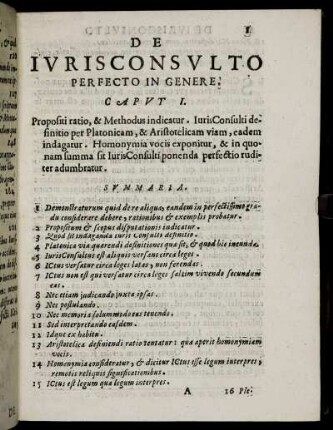 1
DE
IVRISCONSVLTO
PERFECTO IN GENERE.
CAPVT I.
Propositi ratio, & Methodus indicatur. IurisConsulti de-
finitio per Platonicam, & Aristotelicam viam, eadem
indagatur. Homonymia vocis exponitur, & in quo-
nam summa sit IurisConsulti ponenda perfectio rudi-
ter adumbratur.
SVMMARIA.
1 Demonstraturum quid de re aliquo, eandem in perfectissimo gra-
du considerare debere, rationibus & exemplis probatur.
2 Propositum & scopus disputationis indicatur.
3 Quod sit indaganda Iuris Consulti definitio.
4 Platonica via quærendi definitiones quæ sit, & quod hic ineunda.
5 IurisConsultus est aliquis versans circa leges.
6 ICtus versatur circa leges latas, non ferendas.
7 ICtus non est qui versatur circa leges saltem vivendo secundum
eas.
8 Nec etiam judicando juxta ipsas.
9 Nec postulando.
10 Nec memoria solummodo eas tenendo.
11 Sed interpretando easdem.
12 Idque ex habitu.
13 Aristotelica definiendi ratio tentatur: qua aperit homonymiam
vocis.
14 Homonymia consideratur, & dicitur ICtus esse legum interpres,
remotis reliquis significationibus.
15 ICtus est legum qua legum interpres.
A
16 Ple-